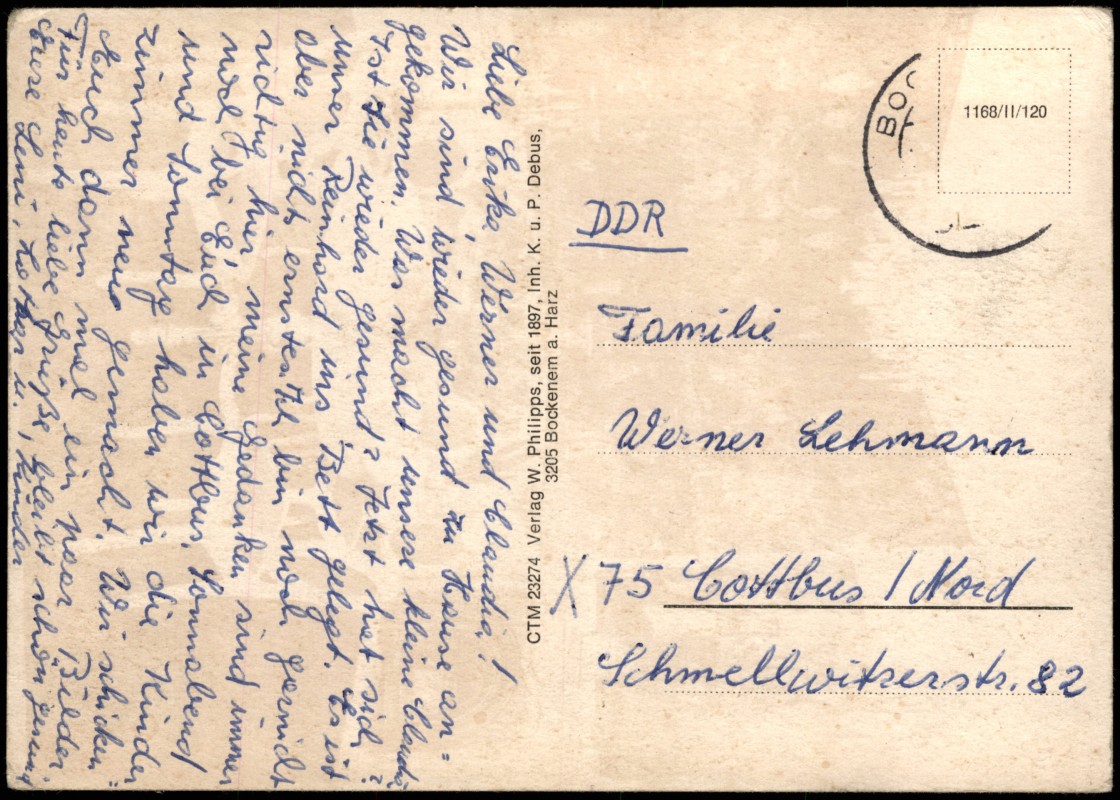 Liebe Erika Werner und Claudia!
Wir sind wieder gesund zu Hause an=
gekommen. Was macht unsere kleine Claudia
Ist sie wieder gesund? Jetzt hat sich
unser Reinhard ins Bett gelegt. Es ist
aber nicht ernstes. Ich bin noch garnicht
richtig hier meine Gedanken sind immer
noch bei Euch in Cottbus. Sonnabend
und Sonntag haben wir die Kinder
zimmer neu gemacht. Wir schicken
Euch dann mal ein paar Bilder
Für heute liebe Grüße, bleibt schön gesund
Eure Leni, Lothar u. Kinder
CTM 23274 Verlag W. Philipps, seit 1897, Inh. K. u. P. Debus,
3205 Bockenem a. Harz
BOC
1168/II/120
DDR
Familie
Werner Lehmann
X 75 Cottbus / Nord
Schmellwitzerstr. 82